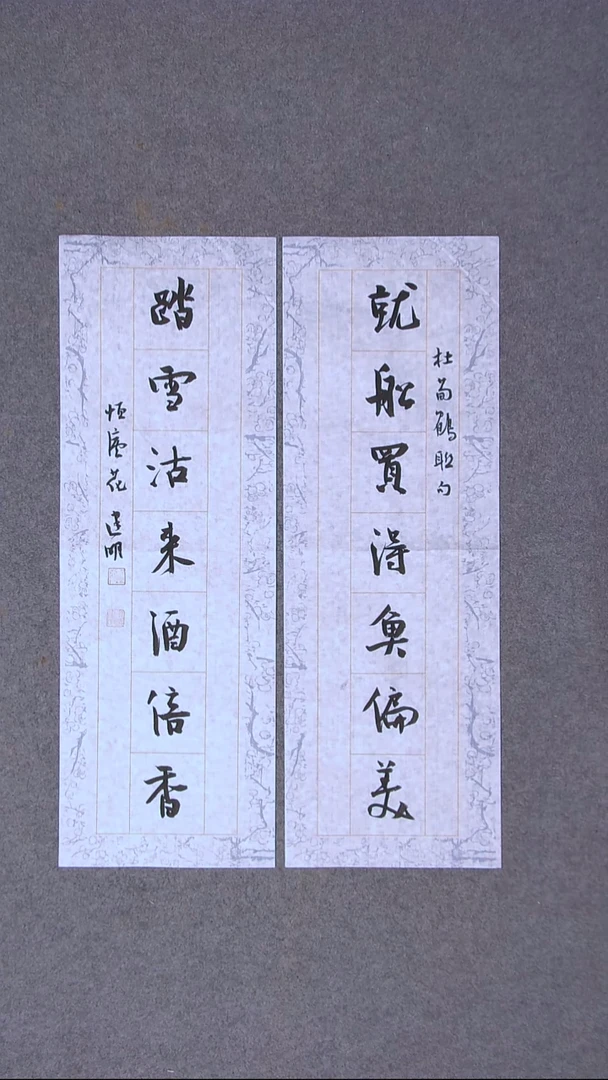 杜荀鶴联句
就船買得魚偏美
踏雪沽来酒倍香
恒廬花建明